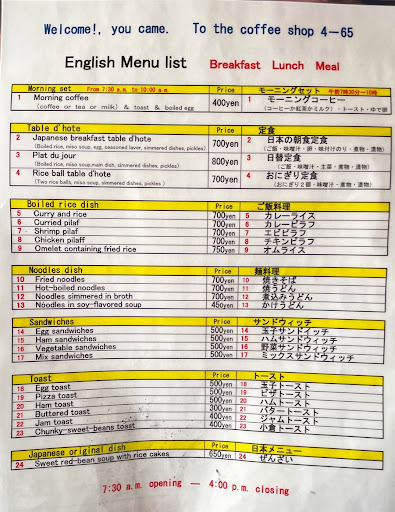 Welcome!, you came. To the coffee shop 4－65
English Menu list Breakfast Lunch Meal
Morning set From 7:30 a.m. to 10:00 a.m Price モーニングセット 午前7時30分～10時
1 Morning coffee 400yen 1 モーニングコーヒー
(coffee or tea or milk) & toast & boiled egg (コーヒーか紅茶かミルク）・トースト・ゆで卵
Table d'hote Price 定食
2 Japanese breakfast table d'hote 700yen 2 日本の朝食定食
(Boiled rice, miso soup, egg, seasoned laver, simmered dishes, pickles) (ご飯・味噌汁・卵・味付けのり・煮物・漬物)
3 Plat du jour 800yen 3 日替定食
(Boiled rice, miso soup,main dish, simmered dishes, pickles) (ご飯・味噌汁・主菜・煮物・漬物)
4 Rice ball table d'hote 700yen 4 おにぎり定食
(Two rice balls, miso soup, simmered dishes, pickles ) (おにぎり2個・味噌汁・煮物・漬物)
Boiled rice dish Price ご飯料理
5 Curry and rice 700yen 5 カレーライス
6 Curried pilaf 700yen 6 カレーピラフ
7 Shrimp pilaf 700yen 7 エビピラフ
8 Chicken pilaff 700yen 8 チキンピラフ
9 Omelet containing fried rice 750yen 9 オムライス
Noodles dish Price 麺料理
10 Fried noodles 700yen 10 焼きそば
11 Hot-boiled noodles 700yen 11 焼うどん
12 Noodles simmered in broth 700yen 12 煮込みうどん
13 Noodles in soy-flavored soup 450yen 13 かけうどん
Sandwiches Price サンドウィッチ
14 Egg sandwiches 500yen 14 玉子サンドイッチ
15 Ham sandwiches 500yen 15 ハムサンドウィッチ
16 Vegetable sandwiches 500yen 16 野菜サンドウィッチ
17 Mix sandwiches 500yen 17 ミックスサンドウィッチ
Toast Price トースト
18 Egg toast 500yen 18 玉子トースト
19 Pizza toast 500yen 19 ピザトースト
20 Ham toast 500yen 20 ハムトースト
21 Buttered toast 300yen 21 バタートースト
22 Jam toast 400yen 22 ジャムトースト
23 Chunky-sweet-beans toast 400yen 23 小倉トースト
Japanese original dish Price 日本メニュー
24 Sweet red-bean soup with rice cakes 650yen 24 ぜんざい
7:30 a.m. opening — 4:00 p.m. closing